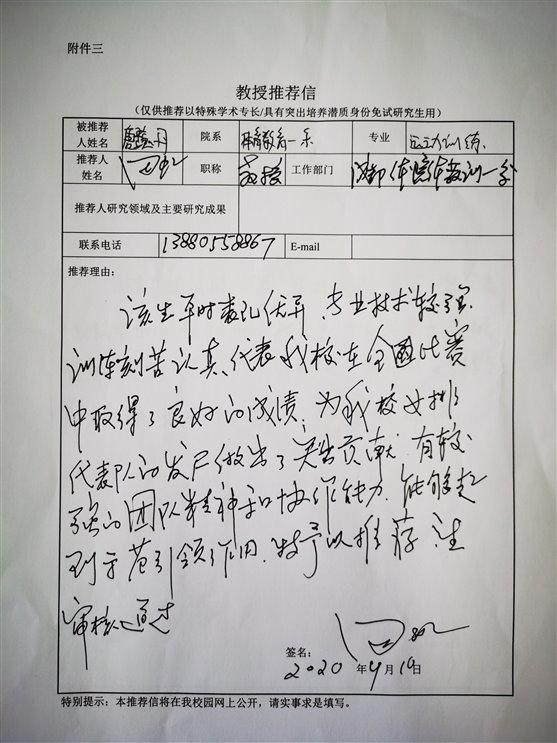 附件三
教授推荐信
（仅供推荐以特殊学术专长/具有突出培养潜质身份免试研究生用）
被推荐人姓名 院系 体育教育一系 专业 运动训练
推荐人姓名 职称 教授 工作部门 成都体院体教训一系
推荐人研究领域及主要研究成果
联系电话 13880558867 E-mail
推荐理由：
该生平时表现优异、专业技术较强
训练刻苦认真、代表我校在全国比赛
中取得了良好的成绩；为我校女排
代表队的发展做出了突出贡献 有较
强的团队精神和协作能力 能够起
到示范引领作用.特予以推荐 注
审核通过
签名：
2020 年 9 月 10 日
特别提示：本推荐信将在我校园网上公开，请实事求是填写。